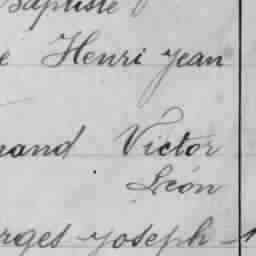 Baptiste
e Henri Jean
nand Victor
Léon
rges Joseph